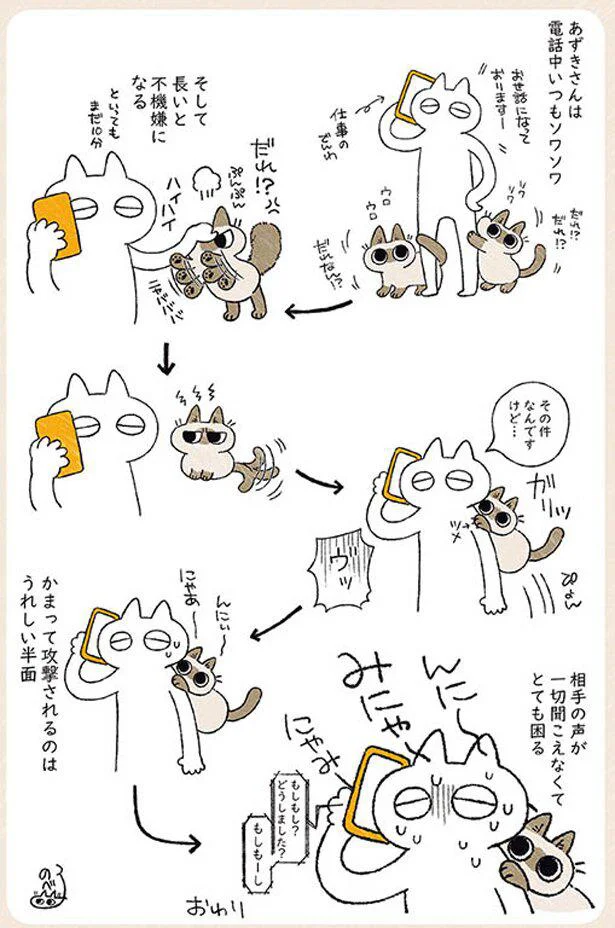 あずきさんは
電話中いつもソワソワ
お世話になって
おりますー
仕事の
でんわ
ソワ
ソワ
だれ!?
だれ!?
ウロ
ウロ
だれなん!?
そして
長いと
不機嫌に
なる
といっても
まだ10分
だれ!?
ぷんぷん
ハイ
ハイ
ニャババババ
その件
なんです
けど…
ガリッ
ツメ
ぴょん
ウッ
んにぃ〜
にゃあ〜
かまって攻撃されるのは
うれしい半面
相手の声が
一切聞こえなくて
とても困る
んに〜
みにゃ
にゃみ
もしもし?
どうしました?
もしもーし
おわり